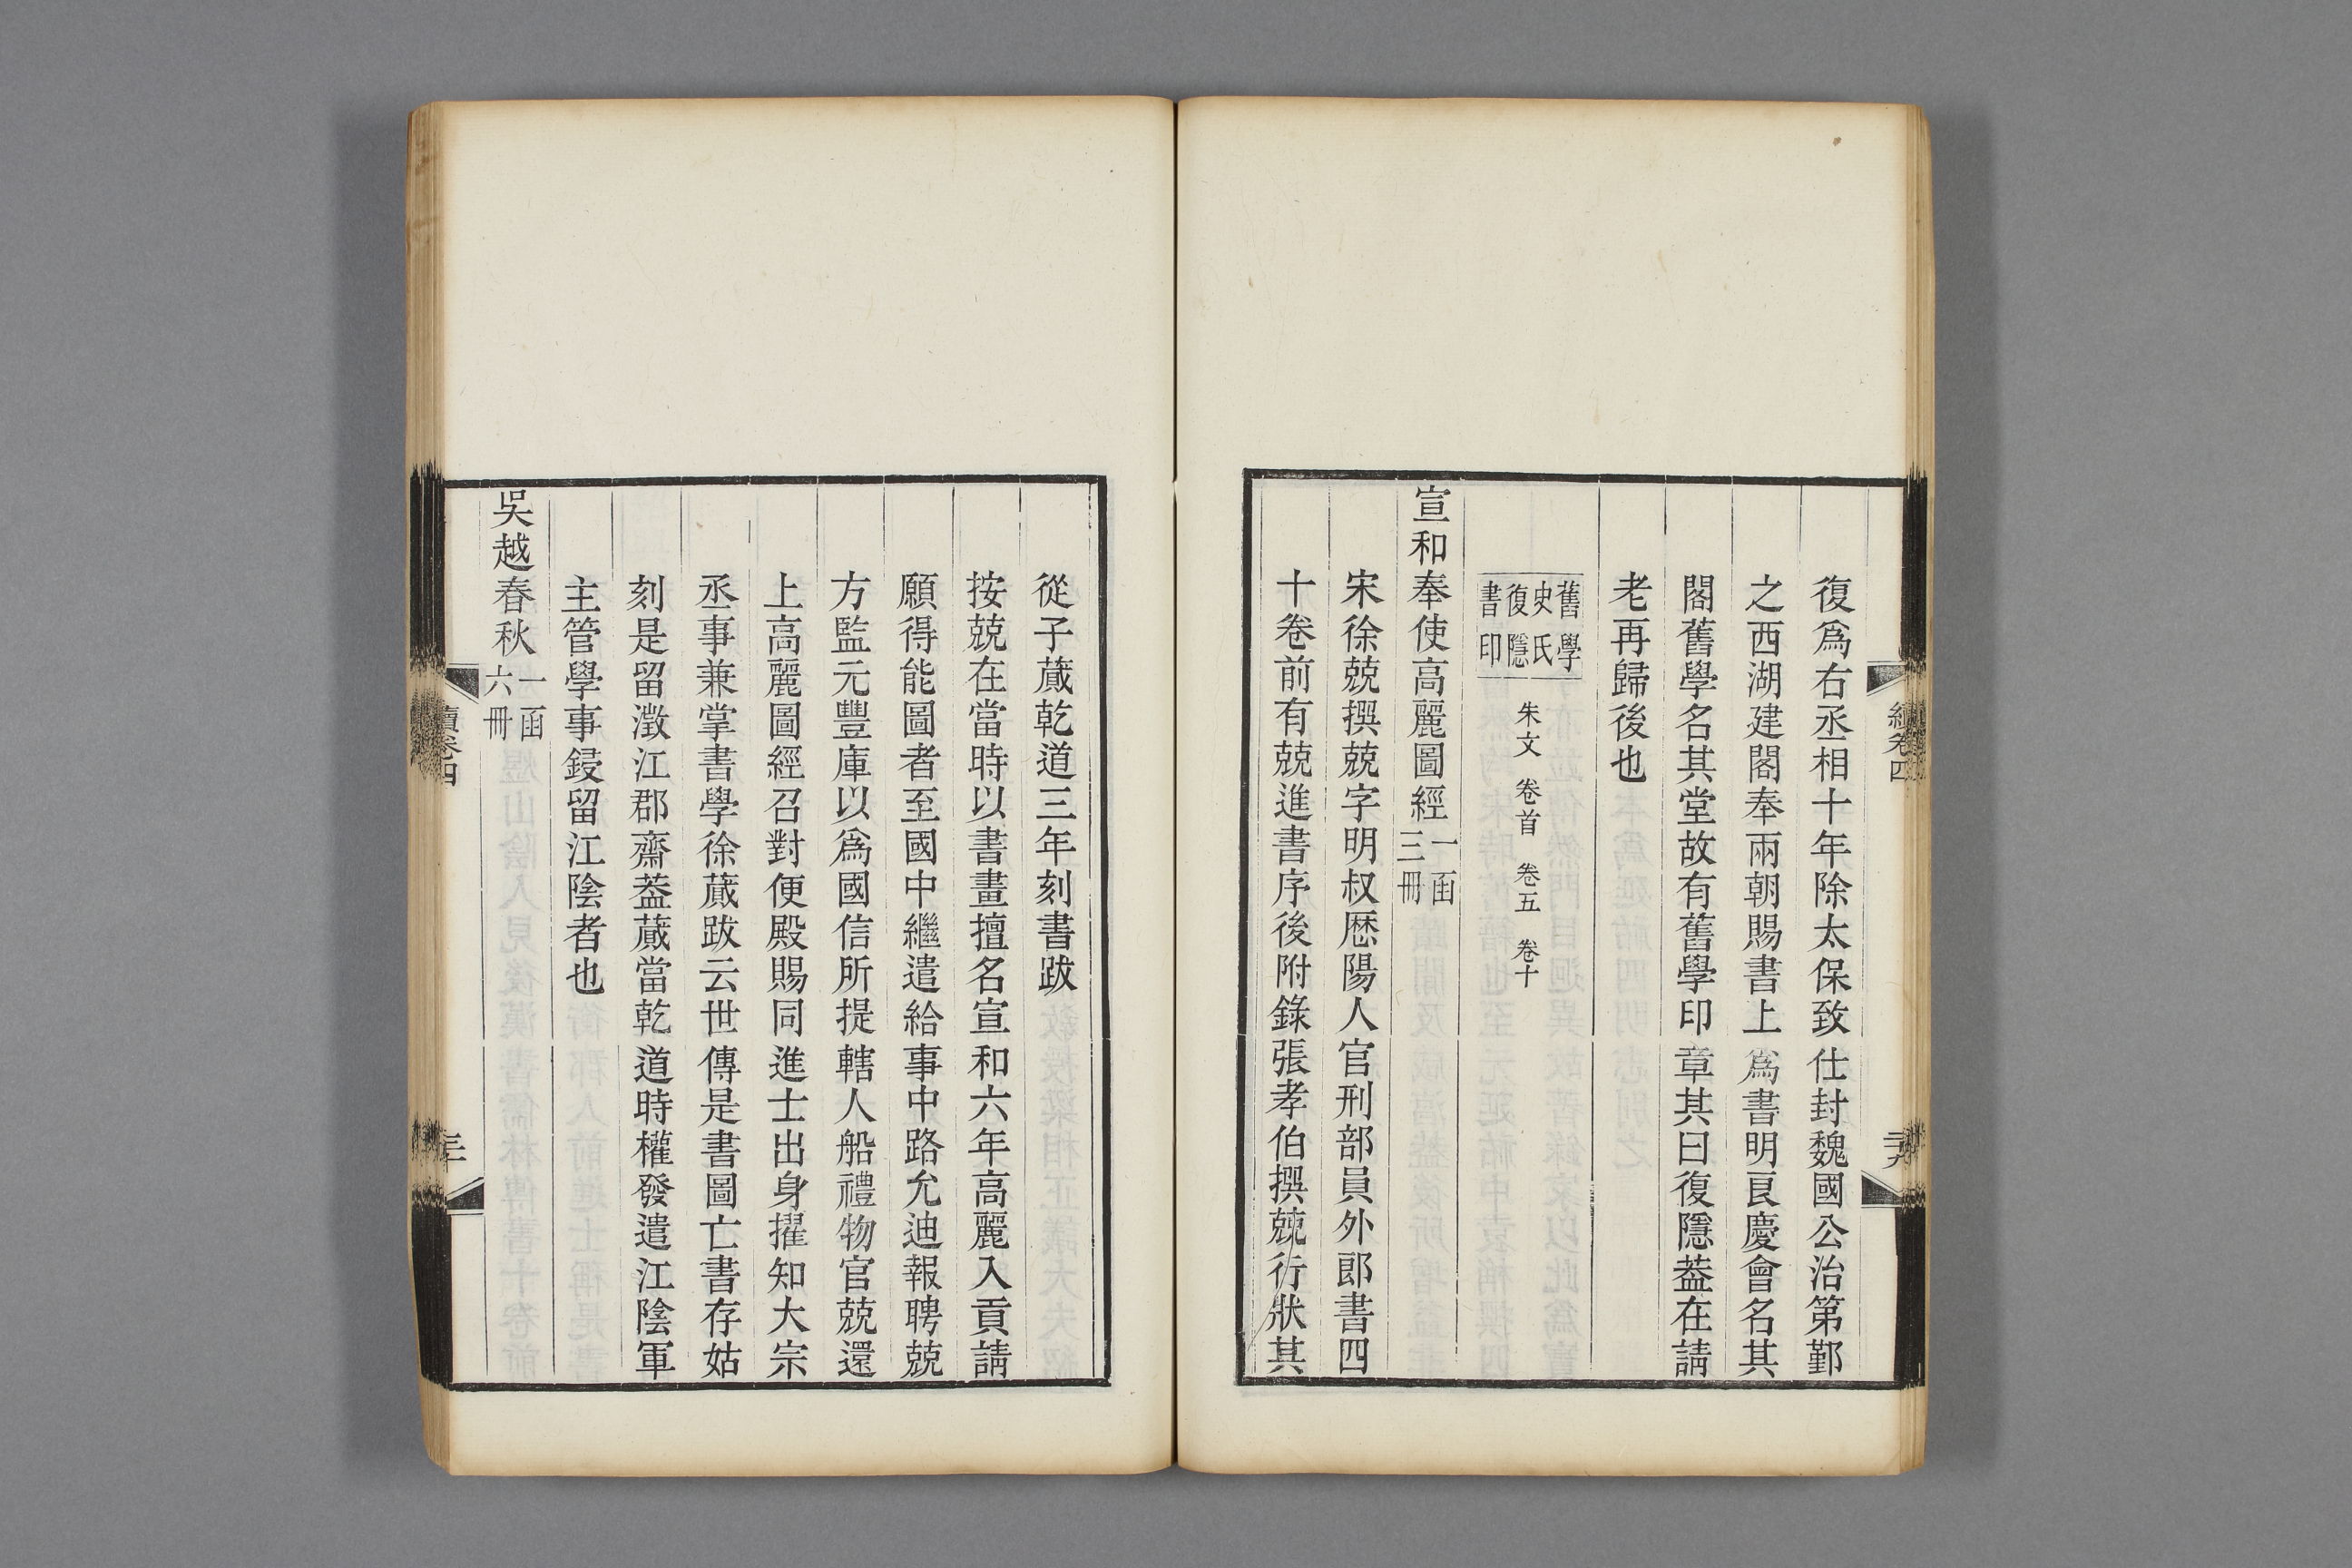 復爲右丞相十年除太保致仕封魏國公治第鄞
之西湖建閣奉兩朝賜書上爲書明良慶會名其
閣舊學名其堂故有舊學印章其曰復隱葢在請
老再歸後也
舊學
史氏
復隱
書印
朱文 卷首 卷五 卷十
宣和奉使高麗圖經一函三冊
宋徐兢撰兢字明叔歴陽人官刑部員外郎書四
十卷前有兢進書序後附錄張孝伯撰兢行狀其
續卷四
從子蕆乾道三年刻書跋
按兢在當時以書畫擅名宣和六年高麗入貢請
願得能圖者至國中繼遣給事中路允迪報聘兢
方監元豐庫以爲國信所提轄人船禮物官兢還
上高麗圖經召對便殿賜同進士出身擢知大宗
丞事兼掌書學徐蕆跋云世傳是書圖亡書存姑
刻是留澂江郡齋葢蕆當乾道時權發遣江陰軍
主管學事鋟留江陰者也
吳越春秋一函六冊
續卷四